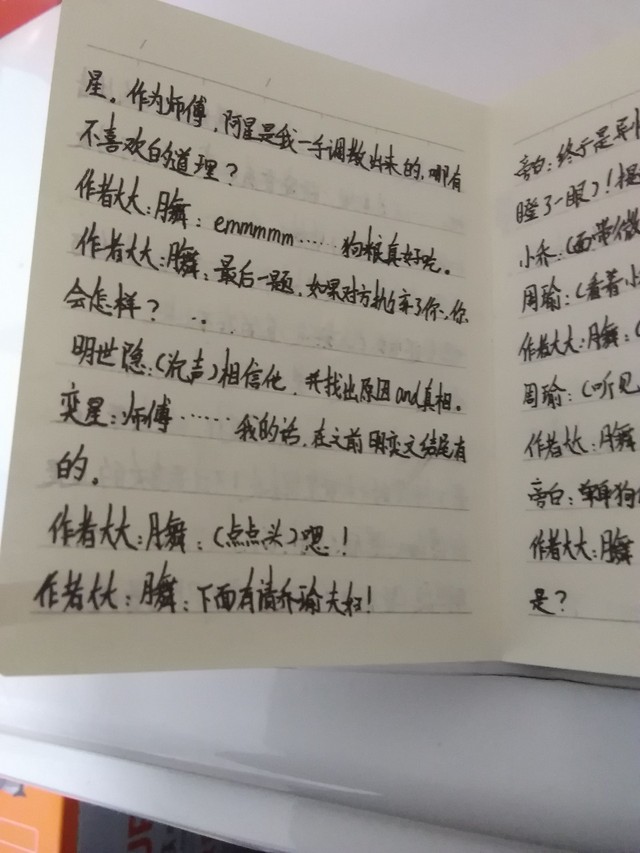 星。作为师傅，阿星是我一手调教出来的，哪有
不喜欢自的道理？
作者大大：月舞：emmmmm……狗粮真好吃。
作者大大：月舞：最后一题，如果对方抛弃了你，你
会怎样？
明世隐：（沉声）相信他，并找出原因and真相。
奕星：师傅……我的话，在之前明奕文结尾有
的。
作者大大：月舞：（点点头）嗯！
作者大大：月舞：下面有请乔瑜夫妇！
旁白：终于是
瞪了一眼）！
小乔：（面带微
周瑜：（看着小
作者大大：月舞：（
周瑜：（听见
作者大大：月舞
旁白：单身狗
作者大大：月舞
是？